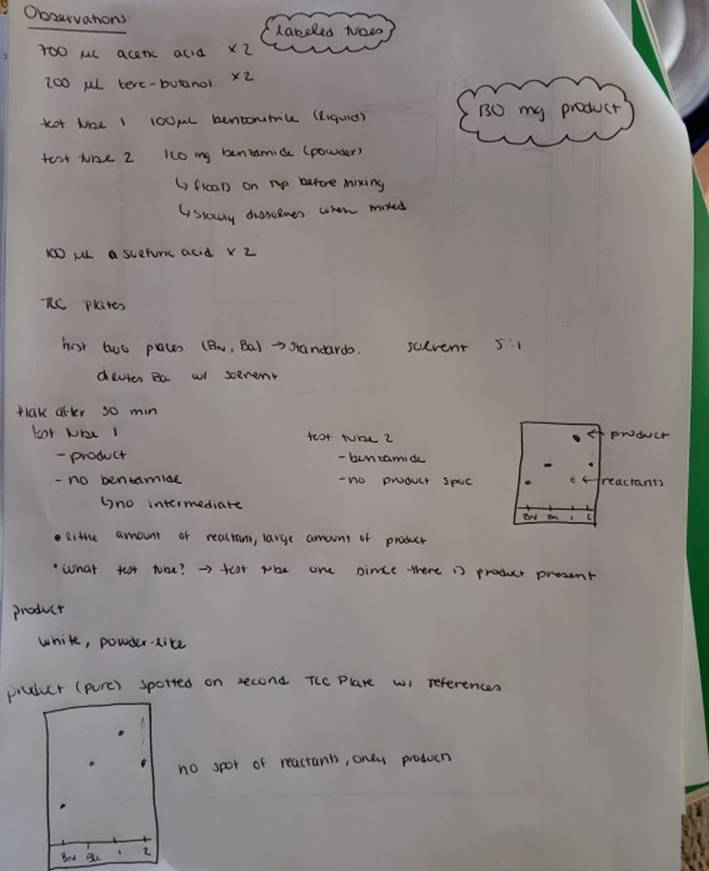 Observations
Labeled tubes
700 µL acetic acid x2
200 µL tert-butanol x2
130 mg product
test tube 1 100µL benzonitrile (liquid)
test tube 2 100 mg benzamide (powder)
↳ floats on top before mixing
↳ slowly dissolves when mixed
100 µL a sulfuric acid x 2
TLC plates
first two places (BN, Ba) → standards. solvent 5:1
dilutes Ba w/ solvent
after 30 min
test tube 1
- product
- no benzamide
↳ no intermediate
test tube 2
- benzamide
- no product spot
← product
← reactants
BN Ba 1 2
• little amount of reactant, large amount of product
• what test tube? → test tube one since there is product present
product
white, powder-like
product (pure) spotted on second TLC Plate w/ references
no spot of reactants, only product
BN Ba 1 2